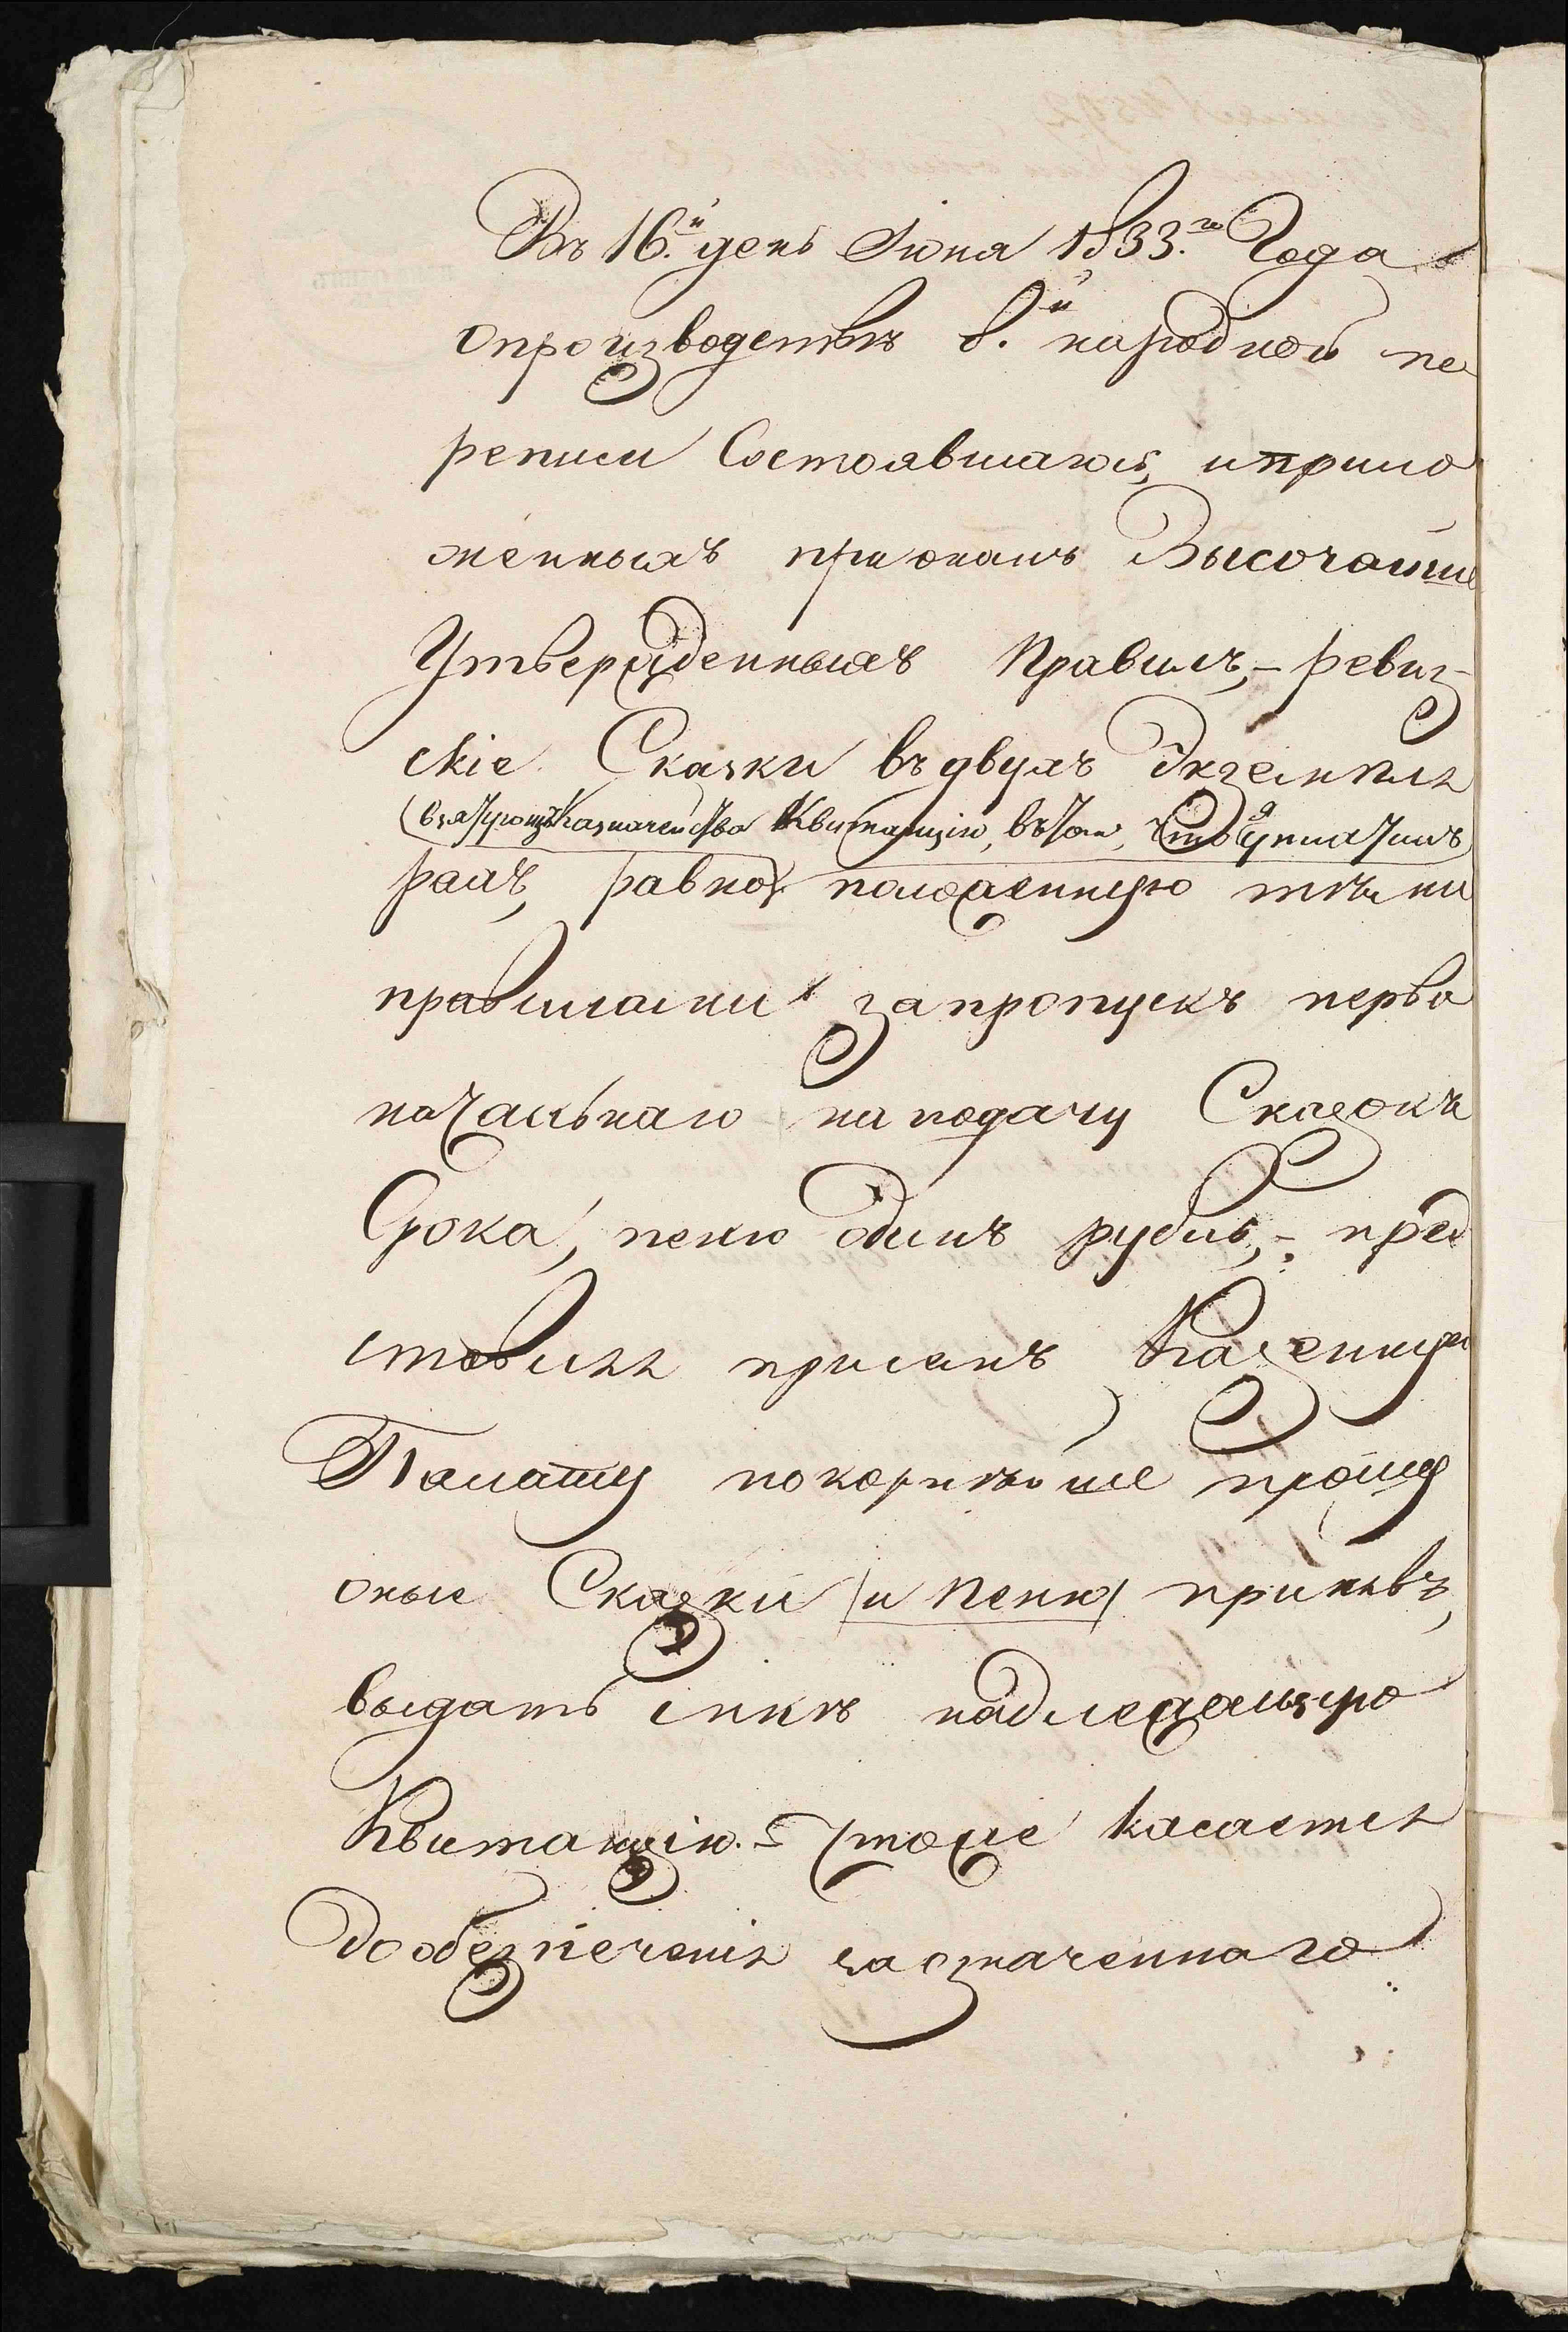 Въ 16.й день Іюня 1833.го Года
опроизводствѣ 8.й народной пе
реписи Состоявшагося, иприло
женныхъ приономъ Высочайше
Утвержденныхъ Правилъ,- ревиз-
скіе Сказки въдвухъ Экземпля
(взятую изъ Казначейства Квитанцію, въ томъ, что я уплатилъ)
рахъ, равно положенную тѣми
правилами запропускъ перво
начальнаго на подачу Сказокъ
Срока, пеню одинъ рубль,- пред
ставляя присемъ Казенную
Палату покорнѣйше прошу
оные Сказки /и Пеню/ принявъ,
выдать мнѣ надлежащую
Квитанцію.- Чтоже касается
до обезпеченія заозначеннаго